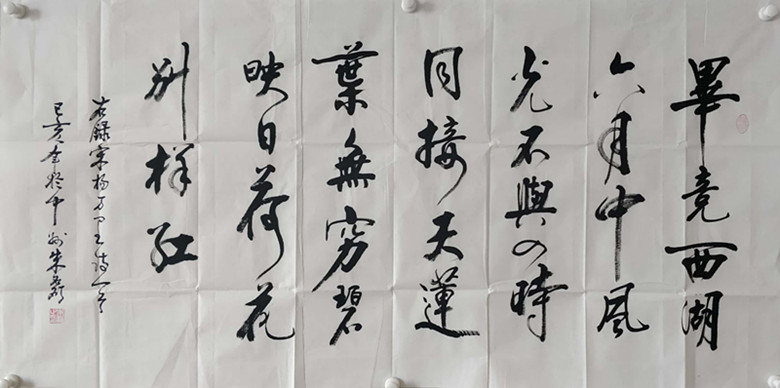 畢竟西湖
六月中風
光不與四時
同接天蓮
葉無窮碧
映日荷花
别样红
右録宋楊万里之诗一首
己亥年於中州朱